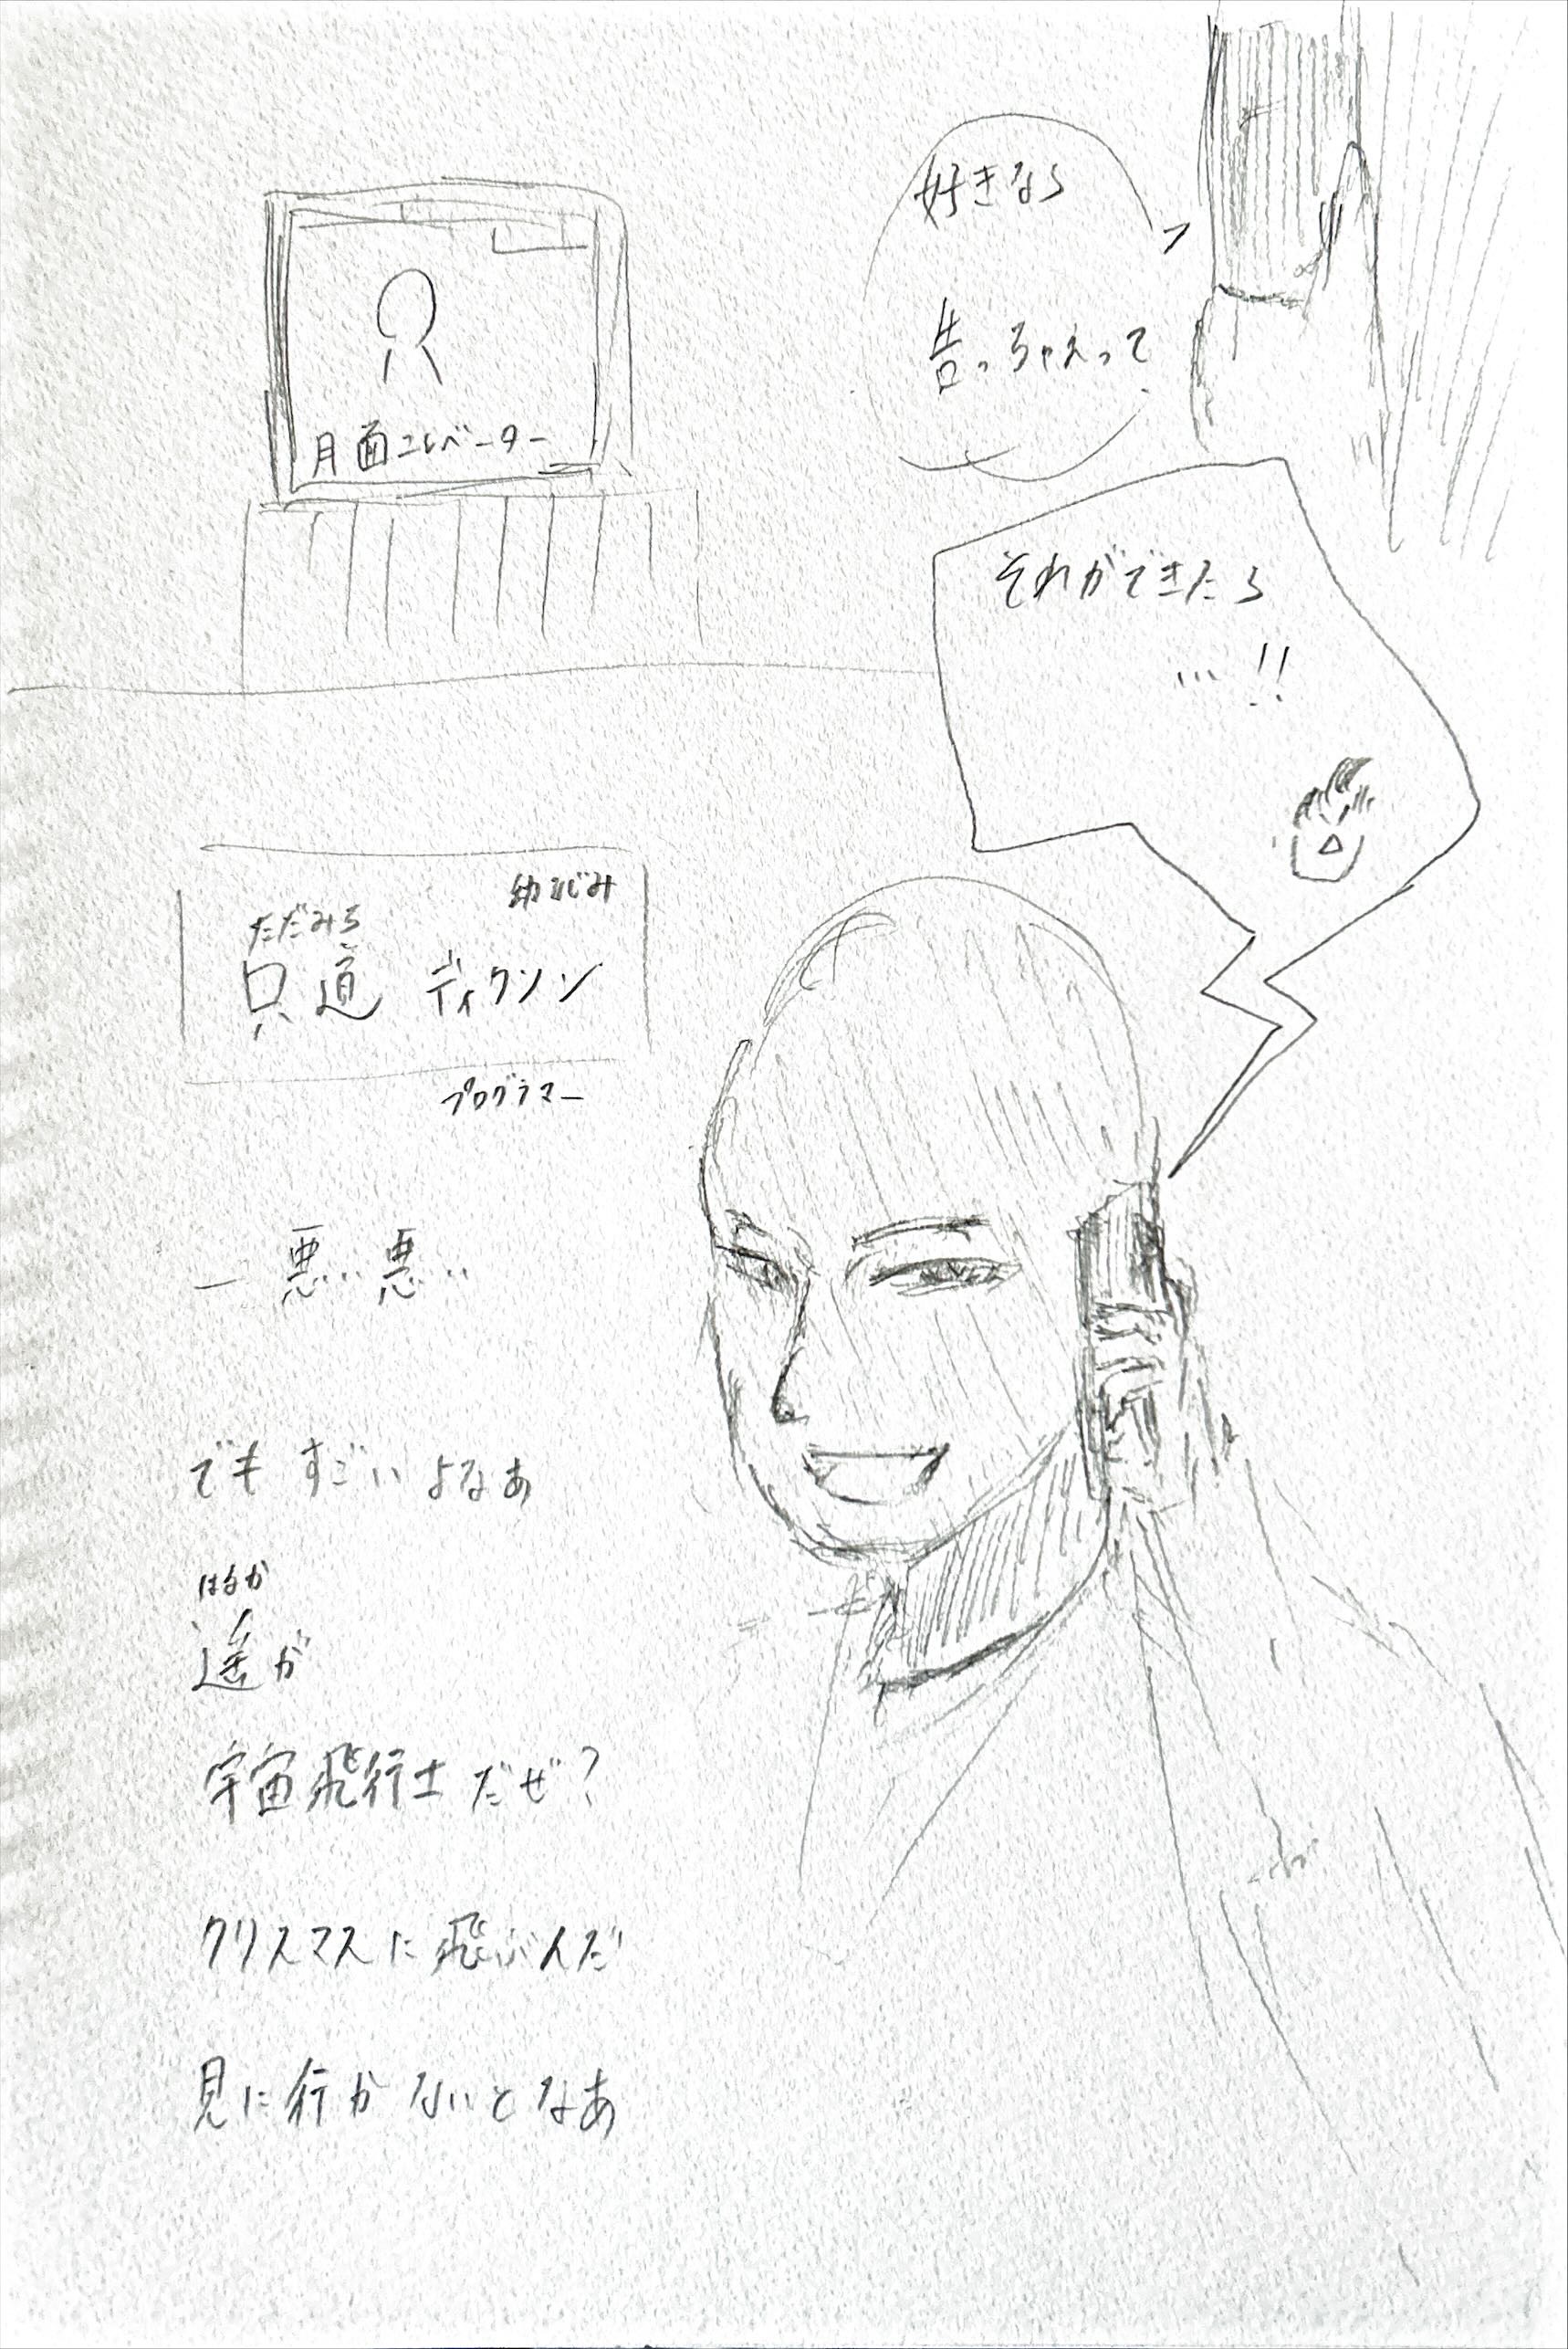 好きなら
告っちゃえって
月面エレベーター
それができたら
…!!
幼なじみ
ただみち
只道 ディクソン
プログラマー
― 悪… 悪…
でも すごいよなあ
はるか
遥が
宇宙飛行士 だぜ?
クリスマスに 飛ぶんだ
見に行かないとなあ